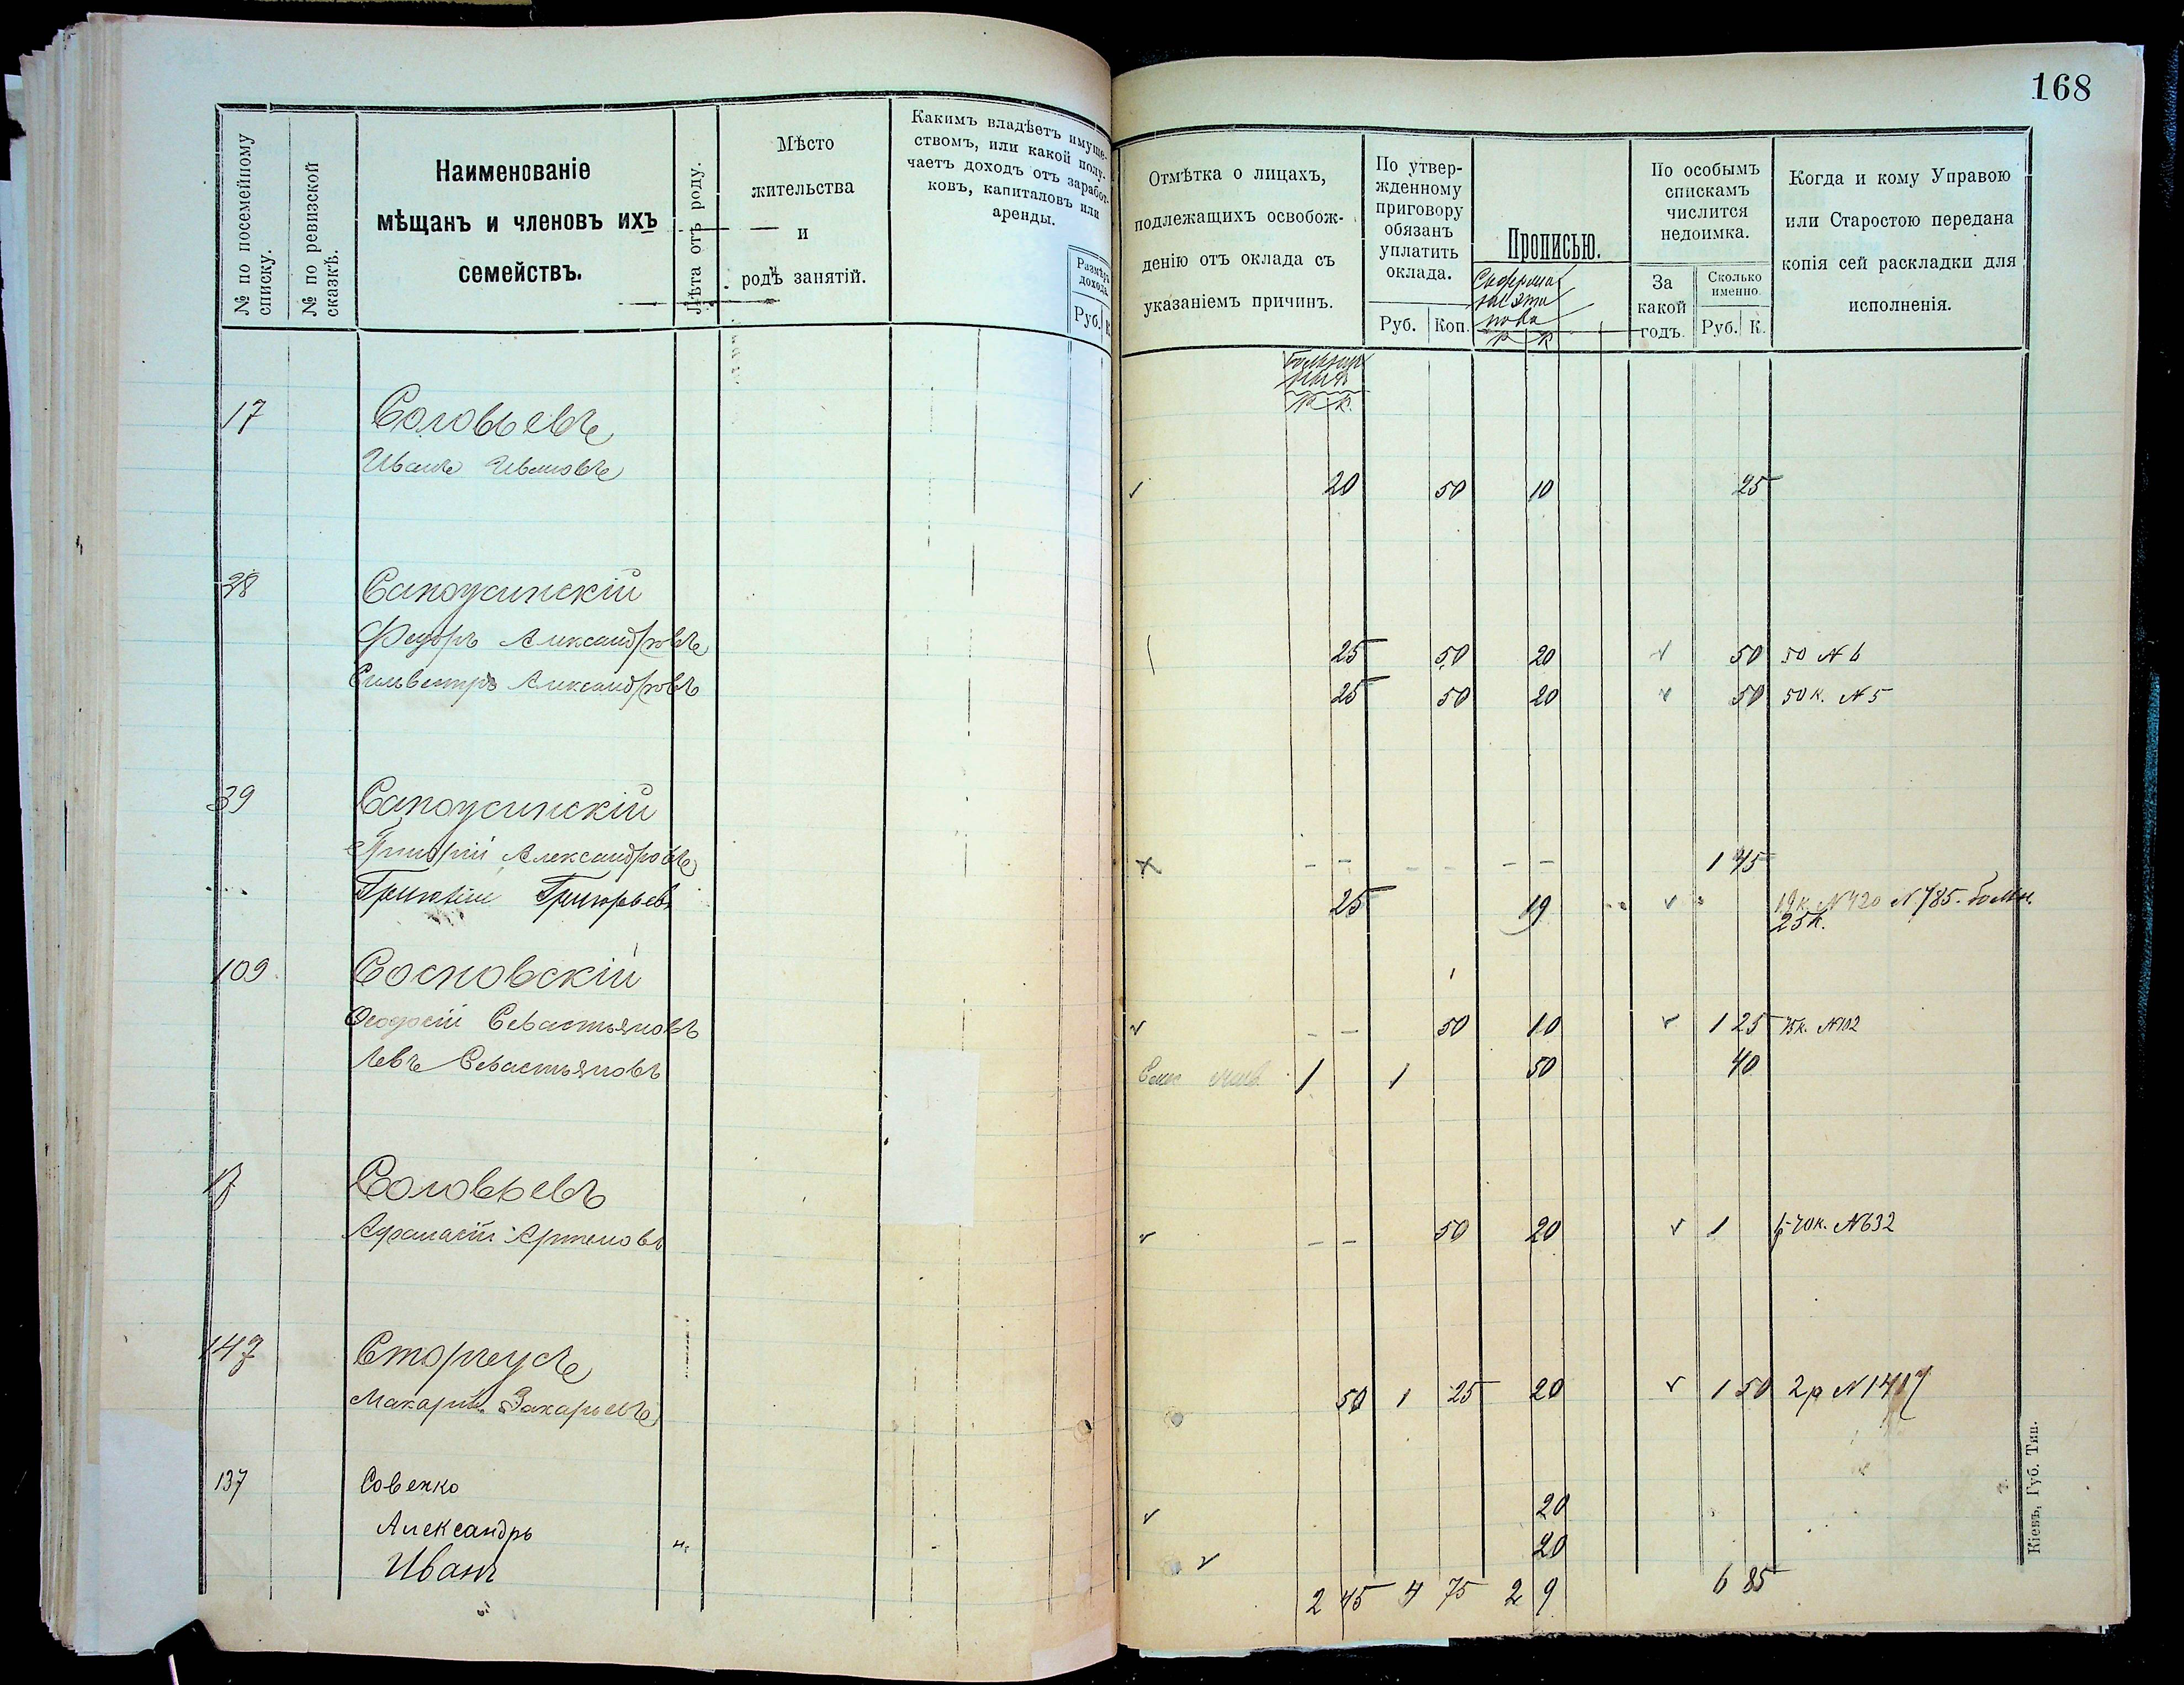 168
№ по посемейному списку.
№ по ревизской сказкѣ.
Наименованіе
мѣщанъ и членовъ ихъ
семействъ.
Лѣта отъ роду.
Мѣсто
жительства
и
родъ занятій.
Какимъ владѣетъ имуще-
ствомъ, или какой полу-
чаетъ доходъ отъ заработ-
ковъ, капиталовъ или
аренды.
Размѣръ
дохода.
Руб. К.
Отмѣтка о лицахъ,
подлежащихъ освобож-
денію отъ оклада съ
указаніемъ причинъ.
По утвер-
жденному
приговору
обязанъ
уплатить
оклада.
Руб. Коп.
Прописью.
р к
По особымъ
спискамъ
числится
недоимка.
За
какой
годъ.
Сколько
именно
Руб. К.
Когда и кому Управою
или Старостою передана
копія сей раскладки для
исполненія.
р к.
17 Соловьевъ
Иванъ Ивановъ 20 50 10 25
38
Федоръ Александровъ 25 50 20 50 50 № 6
Сильвестръ Александровъ 25 50 20 50 50 к. № 5
39
Григорій Александровъ 1 45
Григорьевъ 25 19 19 к. № 420 № 785.
25 к.
109 Сосновскій
Ѳеодосій Севастьяновъ 50 10 1 25 75 к. № 102
Левъ Севастьяновъ 1 1 50 40
17 Соловьевъ
Афанасій Артемовъ 50 20 1 70 к. № 632
147 Сторчусъ
Макарій Захарьевъ 50 1 25 20 1 50 2 р № 1417
137 Совенко
Александръ 20
Иванъ 20
2 45 4 75 2 9 6 85
Кіевъ, Губ. Тип.